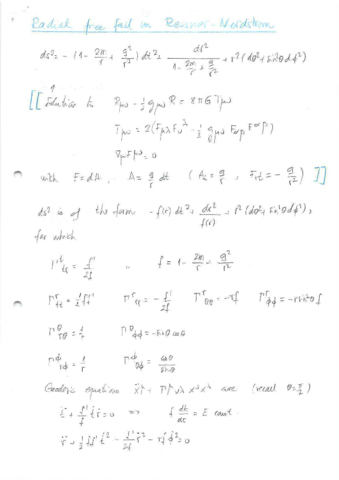 Radial free fall in Reissner-Nordström
ds² = -(1 - 2m/r + q²/r²) dt² + dr²/(1 - 2m/r + q²/r²) + r² (dθ² + sin²θ dφ²)
[[ Solution to Rμν - ½ gμν R = 8πG Tμν
Tμν = 2(Fμλ Fν^λ - ¼ gμν Fαβ F^αβ)
∇μ F^μν = 0
with F = dA, A = q/r dt (At = q/r, Frt = - q/r²) ]]
ds² is of the form -f(r) dt² + dr²/f(r) + r² (dθ² + sin²θ dφ²),
for which
Γ^t_tr = f'/2f , f = 1 - 2m/r + q²/r²
Γ^r_tt = ½ff' Γ^r_rr = - f'/2f Γ^r_θθ = -rf Γ^r_φφ = -r sin²θ f
Γ^θ_rθ = 1/r Γ^θ_φφ = -sinθ cosθ
Γ^φ_rφ = 1/r Γ^φ_θφ = cosθ/sinθ
Geodesic equations ẍ^μ + Γ^μ_νλ ẋ^ν ẋ^λ are (recall θ = π/2)
ẗ + f'/f ṫ ṙ = 0 => f dt/dτ = E const.
r̈ + ½ ff' ṫ² - f'/2f ṙ² - rf φ̇² = 0